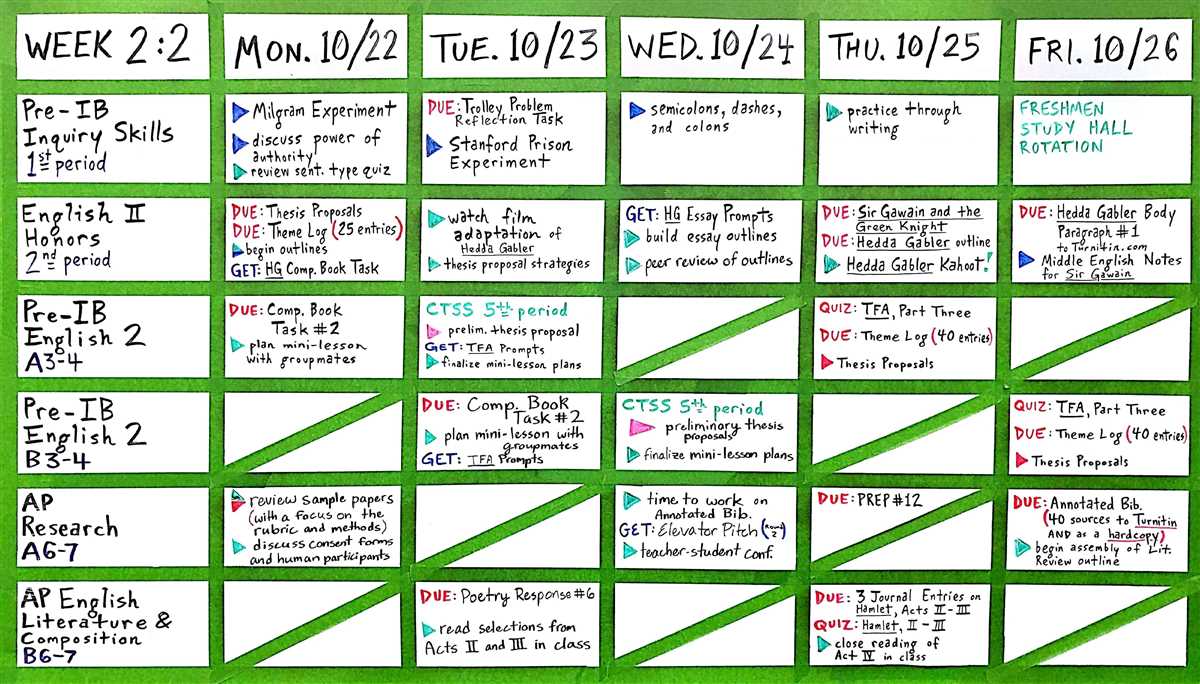 WEEK 2:2
MON. 10/22
TUE. 10/23
WED. 10/24
THU. 10/25
FRI. 10/26
Pre-IB
Inquiry Skills
1st period
Milgram Experiment
discuss power of
authority
review sent. type quiz
DUE: Trolley Problem
Reflection Task
Stanford Prison
Experiment
semicolons, dashes,
and colons
practice through
writing
FRESHMEN
STUDY HALL
ROTATION
English II
Honors
2nd period
DUE: Thesis Proposals
DUE: Theme Log (25 entries)
begin outlines
GET: HG Comp. Book Task
watch film
adaptation of
Hedda Gabler
thesis proposal strategies
GET: HG Essay Prompts
build essay outlines
peer review of outlines
DUE: Sir Gawain and the
Green Knight
DUE: Hedda Gabler outline
Hedda Gabler Kahoot!
DUE: Hedda Gabler Body
Paragraph #1
to Turnitin.com
Middle English Notes
for Sir Gawain
Pre-IB
English 2
A3-4
DUE: Comp. Book
Task #2
plan mini-lesson
with groupmates
CTSS 5th period
prelim. thesis proposal
GET: TFA Prompts
finalize mini-lesson plans
QUIZ: TFA, Part Three
DUE: Theme Log (40 entries)
Thesis Proposals
Pre-IB
English 2
B3-4
DUE: Comp. Book
Task #2
plan mini-lesson with
groupmates
GET: TFA Prompts
CTSS 5th period
preliminary thesis
proposals
finalize mini-lesson plans
QUIZ: TFA, Part Three
DUE: Theme Log (40 entries)
Thesis Proposals
AP
Research
A6-7
review sample papers
(with a focus on the
rubric and methods)
discuss consent forms
and human participants
time to work on
Annotated Bib.
GET: Elevator Pitch (round 2)
teacher-student conf.
DUE: PREP #12
DUE: Annotated Bib.
(40 sources to Turnitin
AND as a hardcopy)
begin assembly of Lit.
Review outline
AP English
Literature &
Composition
B6-7
DUE: Poetry Response #6
read selections from
Acts II and III in class
DUE: 3 Journal Entries on
Hamlet, Acts II-III
QUIZ: Hamlet, II-III
close reading of
Act IV in class